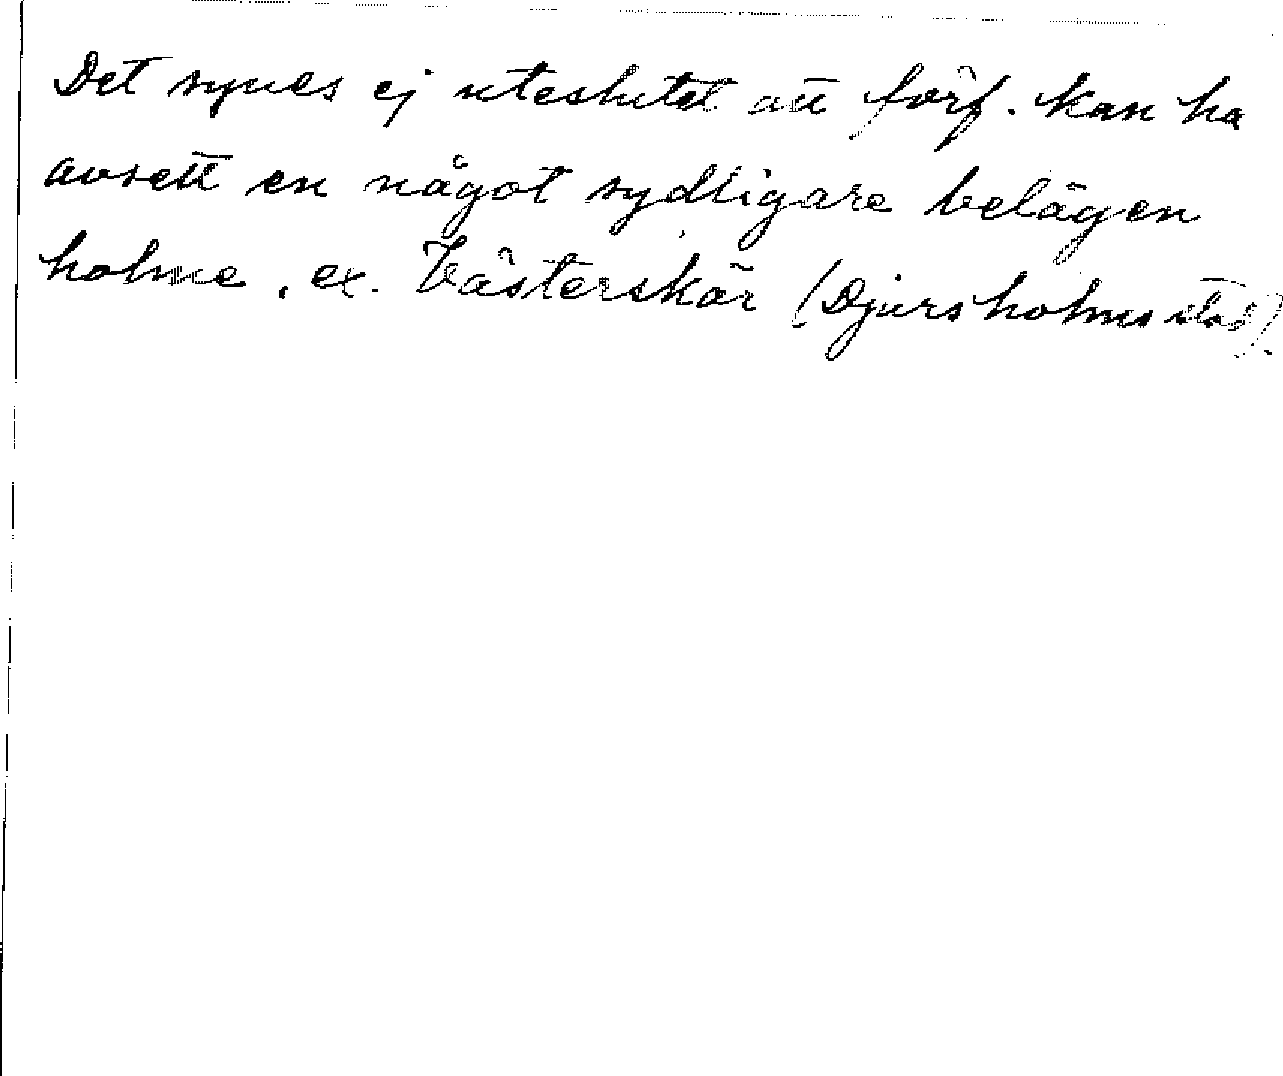 Det synes ej uteslutet att förf. kan ha
avsett en något sydligare belägen
holme, ex. Västerskär (Djursholms stad).